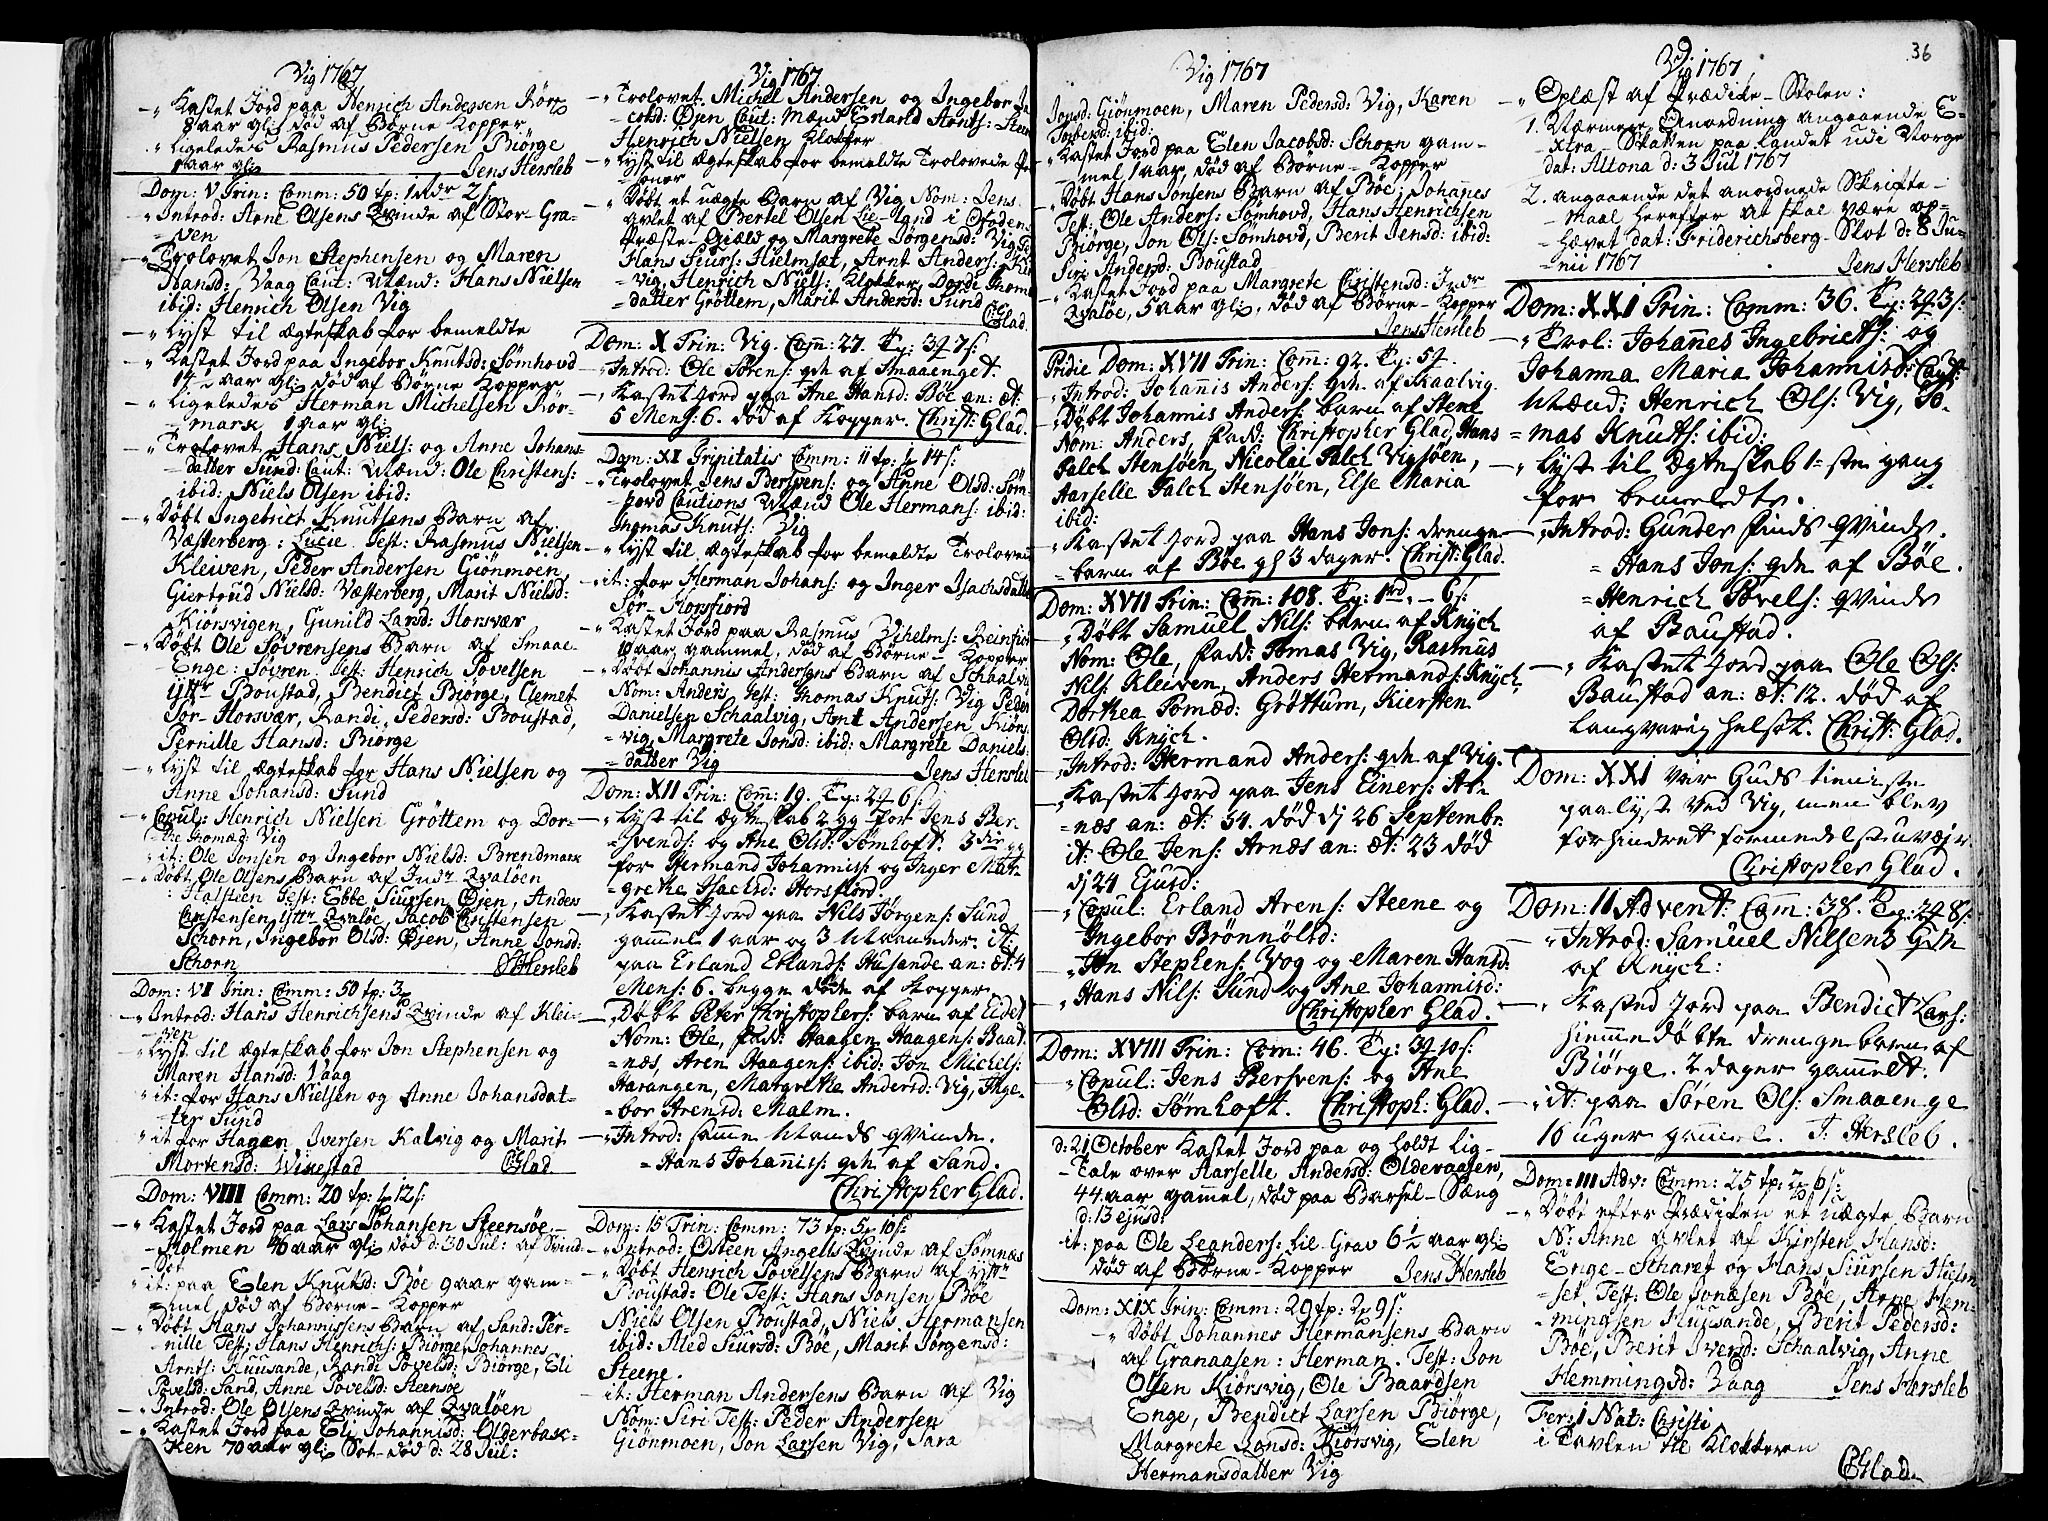 Vig 1767
-" Kastet Jord paa Henrich Andersen Rør
8 aar gl: død af Børne Kopper
" Ligeledes Rasmus Pedersen Biørge
1 aar gl:
Jens Hersleb
Dom: V Trin: Comm: 50 tp: 1 rdr 2 s
-" Introd: Arne Olsens Qvinde af Stor-Gra-
-ven
-" Trolovet Jon Stephensen og Maren
Hansd: Vaag Caut: Mænd: Hans Nielsen
ibid: Henrich Olsen Vig
-" Lyst til ægteskab for bemeldte
-" Kastet Jord paa Ingebor Knutsd: Sømhovd
aar gl: død af Børne Kopper
-" ligeledes Herman Michelsen Rør-
-marx 1 aar gl:
-" Trolovet Hans Niels: og Anne Johans-
-datter Sund: Caut: Mænd: Ole Christens:
ibid: Niels Olsen ibid:
-" Døbt Ingebrict Knutsens Barn af
Væsterberg: Lucie Test: Rasmus Nielsen
Kleiven, Peder Andersen Giönmoen
Giertrud Nielsd: Væsterberg, Marit Nielsd:
Kiørsvigen, Gunild Larsd: Horsvær
-" Døbt Ole Søvrensens Barn af Smaae-
Enge: Søvren Test: Henrich Povelsen
ÿttr Boustad, Bendict Biørge, Clemet
Sør-Horsvær, Randi Pedersd: Boustad,
Pernille Hansd: Biørge
-" Lyst til ægteskab for Hans Nielsen og
Anne Johansd: Sund
-" Copul: Henrich Nielsen Gröttem og Dor-
-the Thomæd: Vig
-" it: Ole Jonsen og Ingebor Nielsd: Brendmark
-" Døbt Ole Olsens Barn af Indr Qvaløen
: Halsteen Test: Ebbe Siursen Øjen, Anders
Christensen ÿttr Qvaløe, Jacob Cristensen
Schorn, Ingebor Olsd: Øjen, Anne Jonsd:
Schorn
JHersleb
Dom: VI Trin: Comm: 50 tp: 3
-" Introd: Hans Henrichsens Qvinde af Klei-
-ven
-" Lyst til ægteskab for Jon Stephensen og
Maren Hansd: Vaag
-" it: for Hans Nielsen og Anne Johansdat-
-ter Sund
" it for Hagen Iversen Kalvig og Marit
Mortensd: Wixestad
CGlad
Dom: VIII Comm: 20 tp: 1 12 s:
-" Kastet Jord paa Lars Johansen Steensøe-
-Holmen 46 aar gl: død d: 30 Jul: af Svind-
-Sot
-" it: paa Elen Knutsd: Bøe 9 aar gam-
-mel, død af Børne-Kopper
-" Døbt Hans Johannissens Barn af Sand: Per-
nille Test: Hans Henrichs: Biørge, Johannes
Arnts: Huusande, Randi Povelsd: Biørge, Eli
Povelsd: Sand, Anne Povelsd: Steensøe
-" Introd: Ole Olsens Qvinde af Qvaløen
-" Kastet Jord paa Eli Johannisd: Olderback-
Ken 70 aar gl: Sot-død d: 28 Jul:
Vig 1767
-" Trolovet Michel Andersen og Ingebor Ja-
-cobsd: Øjen Caut: Mænd Erland Arnts: Steen
Henrich Nielsen Klokker
-" Lyst til ægteskab for bemeldte Trolovede Per-
soner
-" Døbt et uægte Barn af Vig Nom: Jens
avlet af Bertel Olsen Lie-land i Ofodens
Præste-Gield og Margrete Jørgensd: Vig
Hans Siurs: Hielmset, Arnt Anders: Kiørs
-vig, Henrich Niels: Klokker, Dordi Thomæ
datter Gröttem, Marit Andersd: Sund
CGlad.
Dom: X Trin: Vig. Com: 27. Tp: 3 7 s:
-" Introd: Ole Sörens: qde af Smaaenget.
-, Kastet Jord paa Ane Hansd: Böe an: æt:
5 Mens: 6. död af Kopper. Christ: Glad.
Dom: XI Trinitatis Comm: 11 tp: 14 s:
-" Trolovet Jens Bersvens: og Anne Olsd: Søm-
hovd Cautions Mænd Ole Hermans: ibid:
Thomas Knuts: Vig
-" Lyst til ægteskab for bemeldte Trolovede
-" it: for Herman Johans: og Inger Isachsdatter
Sør-Horsfiord
-" Kastet Jord paa Rasmus Vilhelms: Reinfior
aar gammel, død af Børne-Kopper
-" Døbt Johannis Andersens Barn af Schaalvi
Nom: Anders Test: Thomas Knuts: Vig Peder
Danielsen Schaalvig, Arnt Andersen, Kiørs
-vig, Margrete Jonsd: ibid: Margrete Daniels
-datter Vig
Jens Hersleb
Dom: XII Trin: Com: 19. Tp: 2 6 s:
-" Lyst til ægteskab 2 gg for Jens Ber-
-svends: og Ane Olsd: Sømhoft. 3die gg
for Hermand Johannis: og Inger Mar-
=grethe Isachsd: Horsfiord.
-, Kastet Jord paa Nils Jörgens: Sund
gammel 1 aar og 3 Maaneder. it:
paa Erland Erlands: Husande an: æt: 4
Mens: 6. begge döde af Kopper.
-, Döbt Peter Christophers: barn af Eidet
Nom: Ole, fadd: Haagen Haagens: Baad
=næs, Aren Haagens: ibid: Jon Michels:
Harangen, Margrethe Andersd: Vig, Inge-
bor Arensd: Malm.
-, Introd: samme Mands qvinde.
= Hans Johannis: qde af Sand.
Christopher Glad.
Dom: 15 Trin: Comm: 73 tp: 5 10 s:
-" Introd: Osteen Angells Qvinde af Sømnæs
-" Døbt Henrich Povelsens Barn af ÿttr
Boustad: Ole Test: Hans Jonsen Bøe
Niels Olsen Boustad, Niels Hermansen
ibid: Aled Siursd: Bøe, Marit Jørgensd:
Steene.
-" it: Herman Andersens Barn af Vig
Nom: Siri Test: Peder Andersen
Giønmoen, Jon Larsen Vig, Sara
Vig 1767
Jonsd: Giønmoen, Maren Pedersd: Vig, Karen
Torbersd: ibid:
-" Kastet Jord paa Elen Jacobsd: Schorn gam-
mel 1 aar, død af Børne-Kopper
-" Døbt Hans Jonsens Barn af Bøe; Johannes
Test: Ole Anders: Sømhovd, Hans Henrichsen
Biørge, Jon Ols: Sømhovd, Berit Jensd: ibid:
Siri Andersd: Boustad
-" Kastet Jord paa Margrete Christensd: Indr
Qvaløe, 5 aar gl:, død af Børne-Kopper
Jens Hersleb
Pridie Dom: XVII Trin: Com: 92. Tp: 5
-" Introd: Johannis Anders: qde af Skaalvig.
-" Döbt Johannis Anders: barn af Stene
Nom: Anders, fadd: Christopher Glad, Hans
Falch Stensöen, Nicolai Falch Vigsöen,
Aarselle Falch Stensöen, Else Maria
ibid:
-" Kastet Jord paa Hans Jons: drenge
=barn af Böe gl 3 dager. Christ: Glad.
Dom: XVII Trin: Com: 108. Tp: 1 rd. - 6 s:
-" Döbt Samuel Nils: barn af Knÿch
Nom: Ole, fadd: Tomas Vig, Rasmus
Nils: Kleiven, Anders Hermands: Knÿch,
Dorthea Tomæd: Gröttum, Kiersten
Olsd: Knÿch.
-" Introd: Hermand Anders: qde af Vig.
-" Kastet Jord paa Jens Einers: Ar-
=næs an: æt: 54. död dj 26 Septembr:
it: Ole Jens: Arnæs an: æt: 23 död
dj 24 Ejusd:
-" Copul: Erland Arens: Steene og
Ingebor Brönnölsd:
-" Jon Stephens: Vog og Maren Hansd:
-" Hans Nils: Sund og Ane Johannisd:
Christopher Glad.
Dom: XVIII Trin: Com: 46. Tp: 3 10 s:
-" Copul: Jens Bersvens: og Ane
Olsd: Sömhoft. Christoph: Glad.
d: 21 October Kastet Jord paa og holdt Lig-
-Tale over Aarselle Andersd: Oldervaasen,
44 aar gammel, død paa Barsel-Sæng
d: 13 ejusd:
-" it: paa Ole Leanders: Lil-Grav 6½ aar gl:
død af Børne-Kopper
Jens Hersleb
Dom: XIX Trin: Comm: 29 tp: 2 9 s:
-" Døbt Johannes Hermansens Barn
af Granaasen: Herman. Test: Jon
Olsen Kiørsvig, Ole Baardsen
Enge, Bendict Larsen Biørge,
Margrete Hansd: Kiørsvig, Elen
Hermansdatter Vig
36
Vig 1767
-" Oplæst af Prædike-Stolen:
1. Nærmere Anordning angaaende E-
-xtra-Skatten paa Landet udi Norge
dat: Altona d: 3 Jul 1767
2. angaaende det anordnede Skrifte-
-Maal herefter at skal være op-
-hævet dat: Friderichsberg-Slot d: 8 Ju-
-nii 1767
Jens Hersleb
Dom: XXI Trin: Comm: 36. Tp: 2 3 s:
-" Trol: Johannes Ingebricts: og
Johanna Maria Johannisd: Caut:
Mænd: Henrich Ols: Vig, To-
=mas Knuts: ibid:
-" Lyst til Ægteskab 1=ste gang
for bemeldte.
-" Introd: Gunder finds qvinde.
= Hans Jons: qde af Böe.
= Henrich Povels: qvinde
af Baustad.
-" Kastet Jord paa Ole Ols:
Baustad an: æt: 12. död af
langvarig helsot. Christ: Glad.
Dom: XXI var Guds tieniste
paalyst ved Vig, men blev
forhindret formedelst uvæjr
Christopher Glad.
Dom: II Advent: Com: 38. Tp: 2 8 s:
" Introd: Samuel Nilsens Qde
af Knÿch:
-" Kasted Jord paa Bendict Lars:
hiemmedöbte drenge barn af
Biörge. 2 dager gamelt.
-" it: paa Sören Ols: Smaaenge
16 uger gamel. J: Hersleb.
Dom: III Adv: Comm: 25 tp: 2 6 s:
-" Døbt efter Prædiken et uægte Barn
N: Anne avlet af Kirsten Hansd:
Enge-Scharet og Hans Siursen Hielm
-set Test: Ole Jonesen Bøe, Arne Hem-
-mingsen Huusande, Berit Pedersd:
Bøe, Berit Iversd: Schaalvig, Anne
Hemmingsd: Vaag
Jens Hersleb
Fer: 1 Nat: Christi
i Tavlen til Klokkeren
CGlad